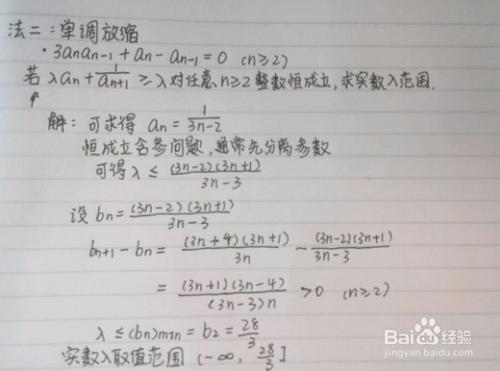 法二：单调放缩
·3anan-1+an-an-1=0 (n≥2)
若 λan+1/an+1≥λ对任意n≥2整数恒成立,求实数λ范围.
解：可求得 an=1/3n-2
恒成立含参问题,通常先分离参数
可得λ≤(3n-2)(3n+1)/3n-3
设bn=(3n-2)(3n+1)/3n-3
bn+1-bn=(3n+4)(3n+1)/3n-(3n-2)(3n+1)/3n-3
=(3n+1)(3n-4)/(3n-3)n>0 (n≥2)
λ≤(bn)min=b2=28/3
实数λ取值范围 (-∞,28/3]
Bai 经验
jingyan.baidu.com